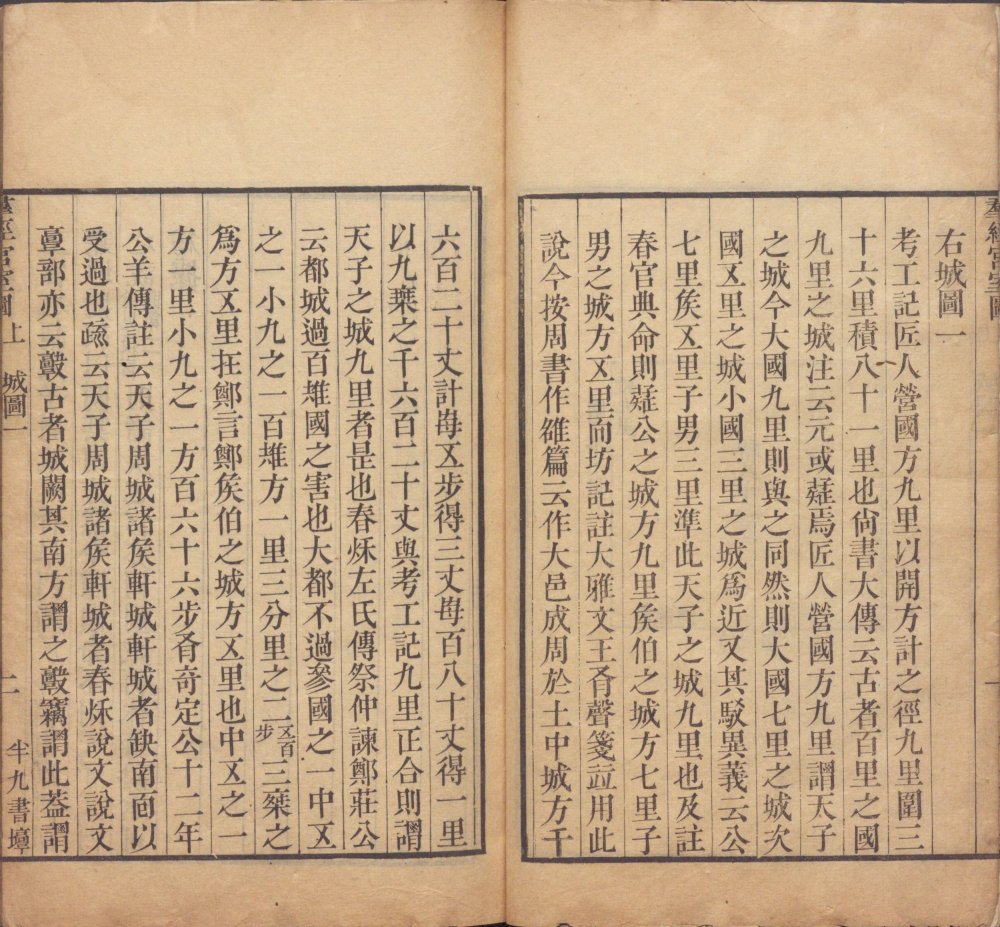 羣經宮室圖
一
右城圖一
考工記匠人營國方九里以開方計之徑九里圍三
十六里積八十一里也尙書大傳云古者百里之國
九里之城注云元或疑焉匠人營國方九里謂天子
之城今大國九里則與之同然則大國七里之城次
國五里之城小國三里之城爲近又其駮異義云公
七里侯五里子男三里準此天子之城九里也及註
春官典命則疑公之城方九里侯伯之城方七里子
男之城方五里而坊記註大雅文王有聲箋竝用此
說今按周書作雒篇云作大邑成周於土中城方千
六百二十丈計每五步得三丈每百八十丈得一里
以九乘之千六百二十丈與考工記九里正合則謂
天子之城九里者是也春秋左氏傳祭仲諫鄭莊公
云都城過百雉國之害也大都不過參國之一中五
之一小九之一百雉方一里三分里之二五百步三乘之
爲方五里在鄭言鄭侯伯之城方五里也中五之一
方一里小九之一方百六十六步有奇定公十二年
公羊傳註云天子周城諸侯軒城軒城者缺南面以
受過也疏云天子周城諸侯軒城者春秋說文說文
𩫖部亦云𩫏古者城闕其南方謂之𩫏竊謂此蓋謂
羣經宮室圖 上 城圖一 二 半九書塾